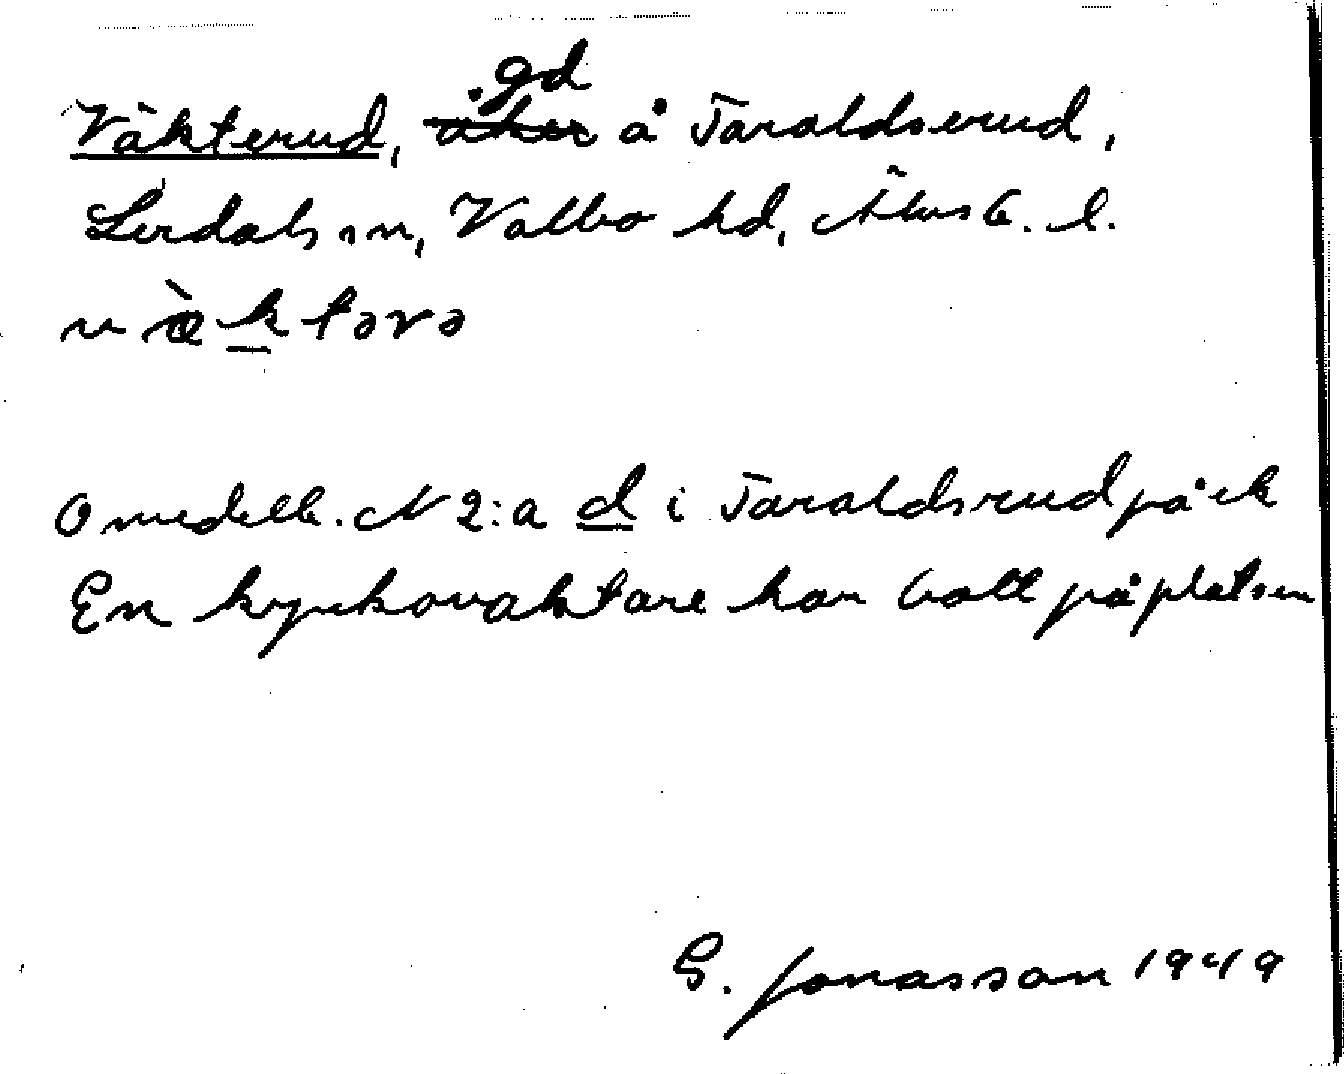 Väkterud, gd å Taraldserud,
Lerdals sn, Valbo hd, Älvsb. l.
væ̀ktərə
Omedelb. N 2:a d i Taraldsrud på ek
En kyrkovaktare har bott på platsen
G. Jonasson 1949